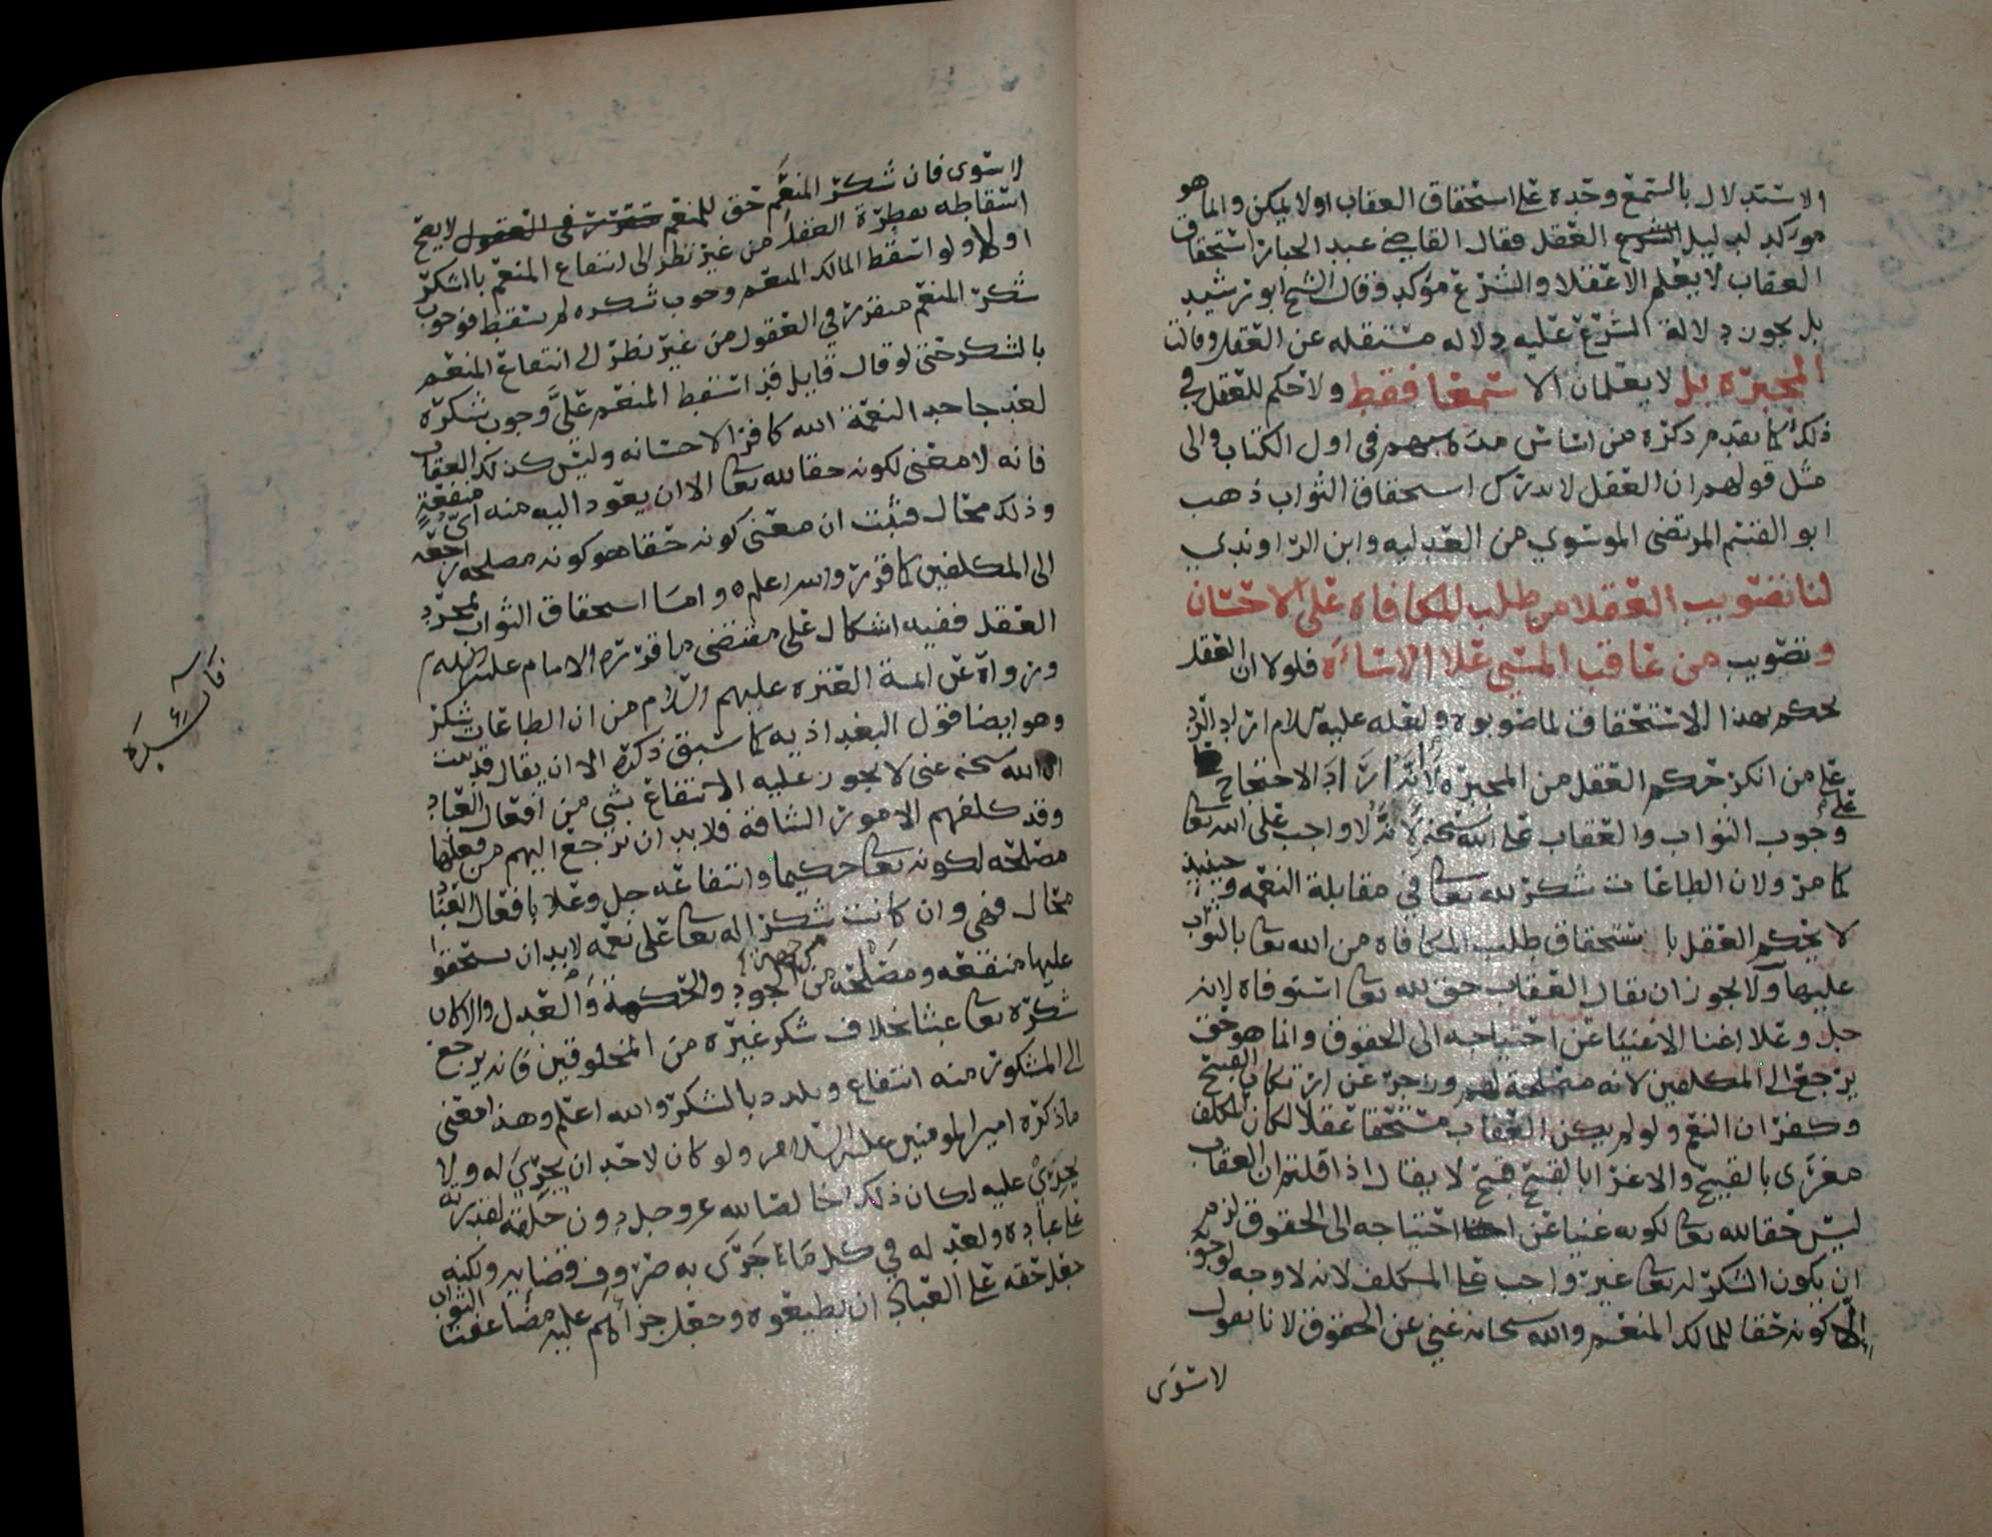 الاستدلال بالسمع وحده على استحقاق العقاب اولا يمكن وانما هو
موكد لدليل العقل فقال القاضي عبد الجبار استحقاق
العقاب لا يعلم الا عقلا والشرع موكد وقال الشيخ ابو رشيد
بل يجوز دلالة الشرع عليه دلاله مستقله عن العقل وقالت
المجبره بل لا يعلمان الا سمعا فقط ولا حكم للعقل في
ذلك كما تقدم ذكره من اساس مذهبهم في اول الكتاب والى
مثل قولهم ان العقل لا يدرك استحقاق الثواب ذهب
ابو القسم المرتضى الموسوي من العدليه وابن الراوندي
لنا تصويب العقلا من طلب المكافاه على الاحسان
وتصويب من عاقب المسي على الاساءه فلولا ان العقل
يحكم بهذا الاستحقاق لما صوبوه ولعله عليه السلام اراد الرد
على من انكر حكم العقل من المجبره لا انه اراد الاحتجاج
على وجوب الثواب والعقاب على الله سبحنه لانه لا واجب على الله تعا
كما مر ولان الطاعات شكر لله تعا في مقابلة النعمه وحينيذ
لا يحكم العقل باستحقاق طلب المكافاه من الله تعا بالثواب
عليها ولا يجوز ان يقال العقاب حق لله تعا استوفاه لانه
جل وعلا اغنا الاغنيا عن احتياجه الى الحقوق وانما هو حق
يرجع الى المكلفين لانه مصلحة لهم وزاجر عن ارتكاب القبيح
وكفران النعم ولو لم يكن العقاب مستحقا عقلا لكان المكلف
مغرى بالقبيح والاغرا بالقبيح قبيح لا يقال اذا قلتم ان العقاب
ليس حقا لله تعا لكونه غنيا عن احتياجه الى الحقوق لزم
ان يكون الشكر له تعا غير واجب على المكلف لانه لا وجه لوجوبه
الا كونه حقا للمالك المنعم والله سبحانه غني عن الحقوق لانا نقول
لا سوى
لا سوى فان شكر المنعم حق للمنعم لا يصح
اسقاطه بفطرة العقل من غير نظر الى انتفاع المنعم بالشكر
او لا ولو اسقط المالك المنعم وجوب شكره لم يسقط فوجوب
شكر المنعم متقرر في العقول من غير نظر الى انتفاع المنعم
بالشكر حتى لو قال قايل قد اسقط المنعم علي وجوب شكره
لعد جاحد النعمة الله كافر الاحسانه وليس كذلك العقاب
فانه لا معنى لكونه حقا لله تعا الا ان يعود اليه منه اي منفعة
وذلك محال فثبت ان معنى كونه حقا هو كونه مصلحه راجعه
الى المكلفين كما قرر والله اعلم واما استحقاق الثواب بمجرد
العقل ففيه اشكال على مقتضى ما قرره الامام عليه السلم
ورواه عن ايمة العتره عليهم السلام من ان الطاعات شكر
وهو ايضا قول البغداذيه كما سبق ذكره الا ان يقال قد ثبت
ان الله سبحنه غني لا يجوز عليه الانتفاع بشي من افعال العباد
وقد كلفهم الامور الشاقة فلا بد ان ترجع اليهم من فعلها
مصلحه لكونه تعا حكيما وانتفاعه جل وعلا بافعال العباد
محال فهي وان كانت شكرا له تعا على نعمه لا بد ان يستحقوا
عليها منفعه ومصلحه من جهة الجود والحكمة والعدل والا كان
شكره تعا عبثا بخلاف شكر غيره من المخلوقين فانه يرجع
الى المشكور منه انتفاع وتلذذ بالشكر والله اعلم وهذا معنى
ما ذكره امير المومنين عليه السلام ولو كان لاحد ان يجري له ولا
يجري عليه لكان ذلك خالصا لله عز وجل دون خلقه لقدرته
على عباده ولعدله في كل ما جرى به صروف قضايه ولكنه
جعل حقه على العباد ان يطيعوه وجعل جزاهم عليه مضاعفة الثواب